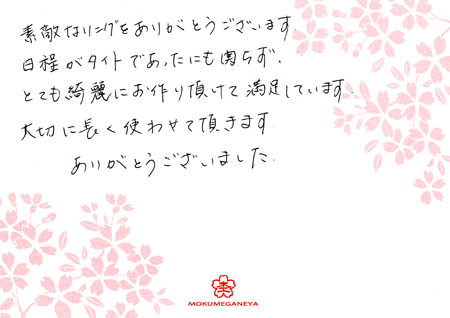 素敵なリングをありがとうございます.
日程がタイトであったにも関らず、
とても綺麗にお作り頂けて満足しています.
大切に長く使わせて頂きます.
ありがとうございました.
MOKUMEGANEYA